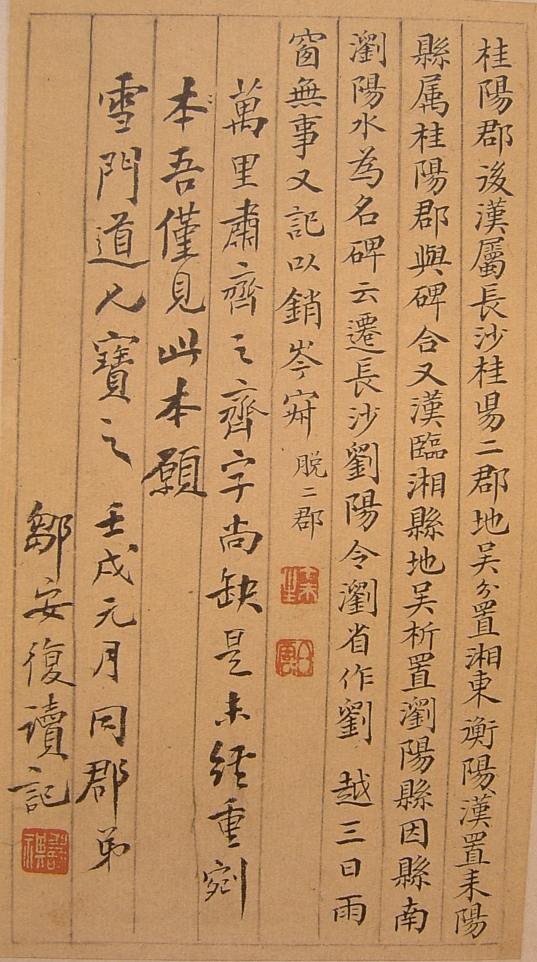 桂陽郡後漢屬長沙桂陽二郡地吳分置湘東衡陽漢置耒陽
縣属桂陽郡與碑合又漢臨湘縣地吳析置瀏陽縣因縣南
瀏陽水為名碑云遷長沙劉陽令瀏省作劉 越三日雨
窗無事又記以銷岑寂 脫二郡
萬里肅齊之齊字尚缺是未經重剜
本吾僅見此本願
雪門道人寶之 壬戌元月同郡弟
鄒安復讀記